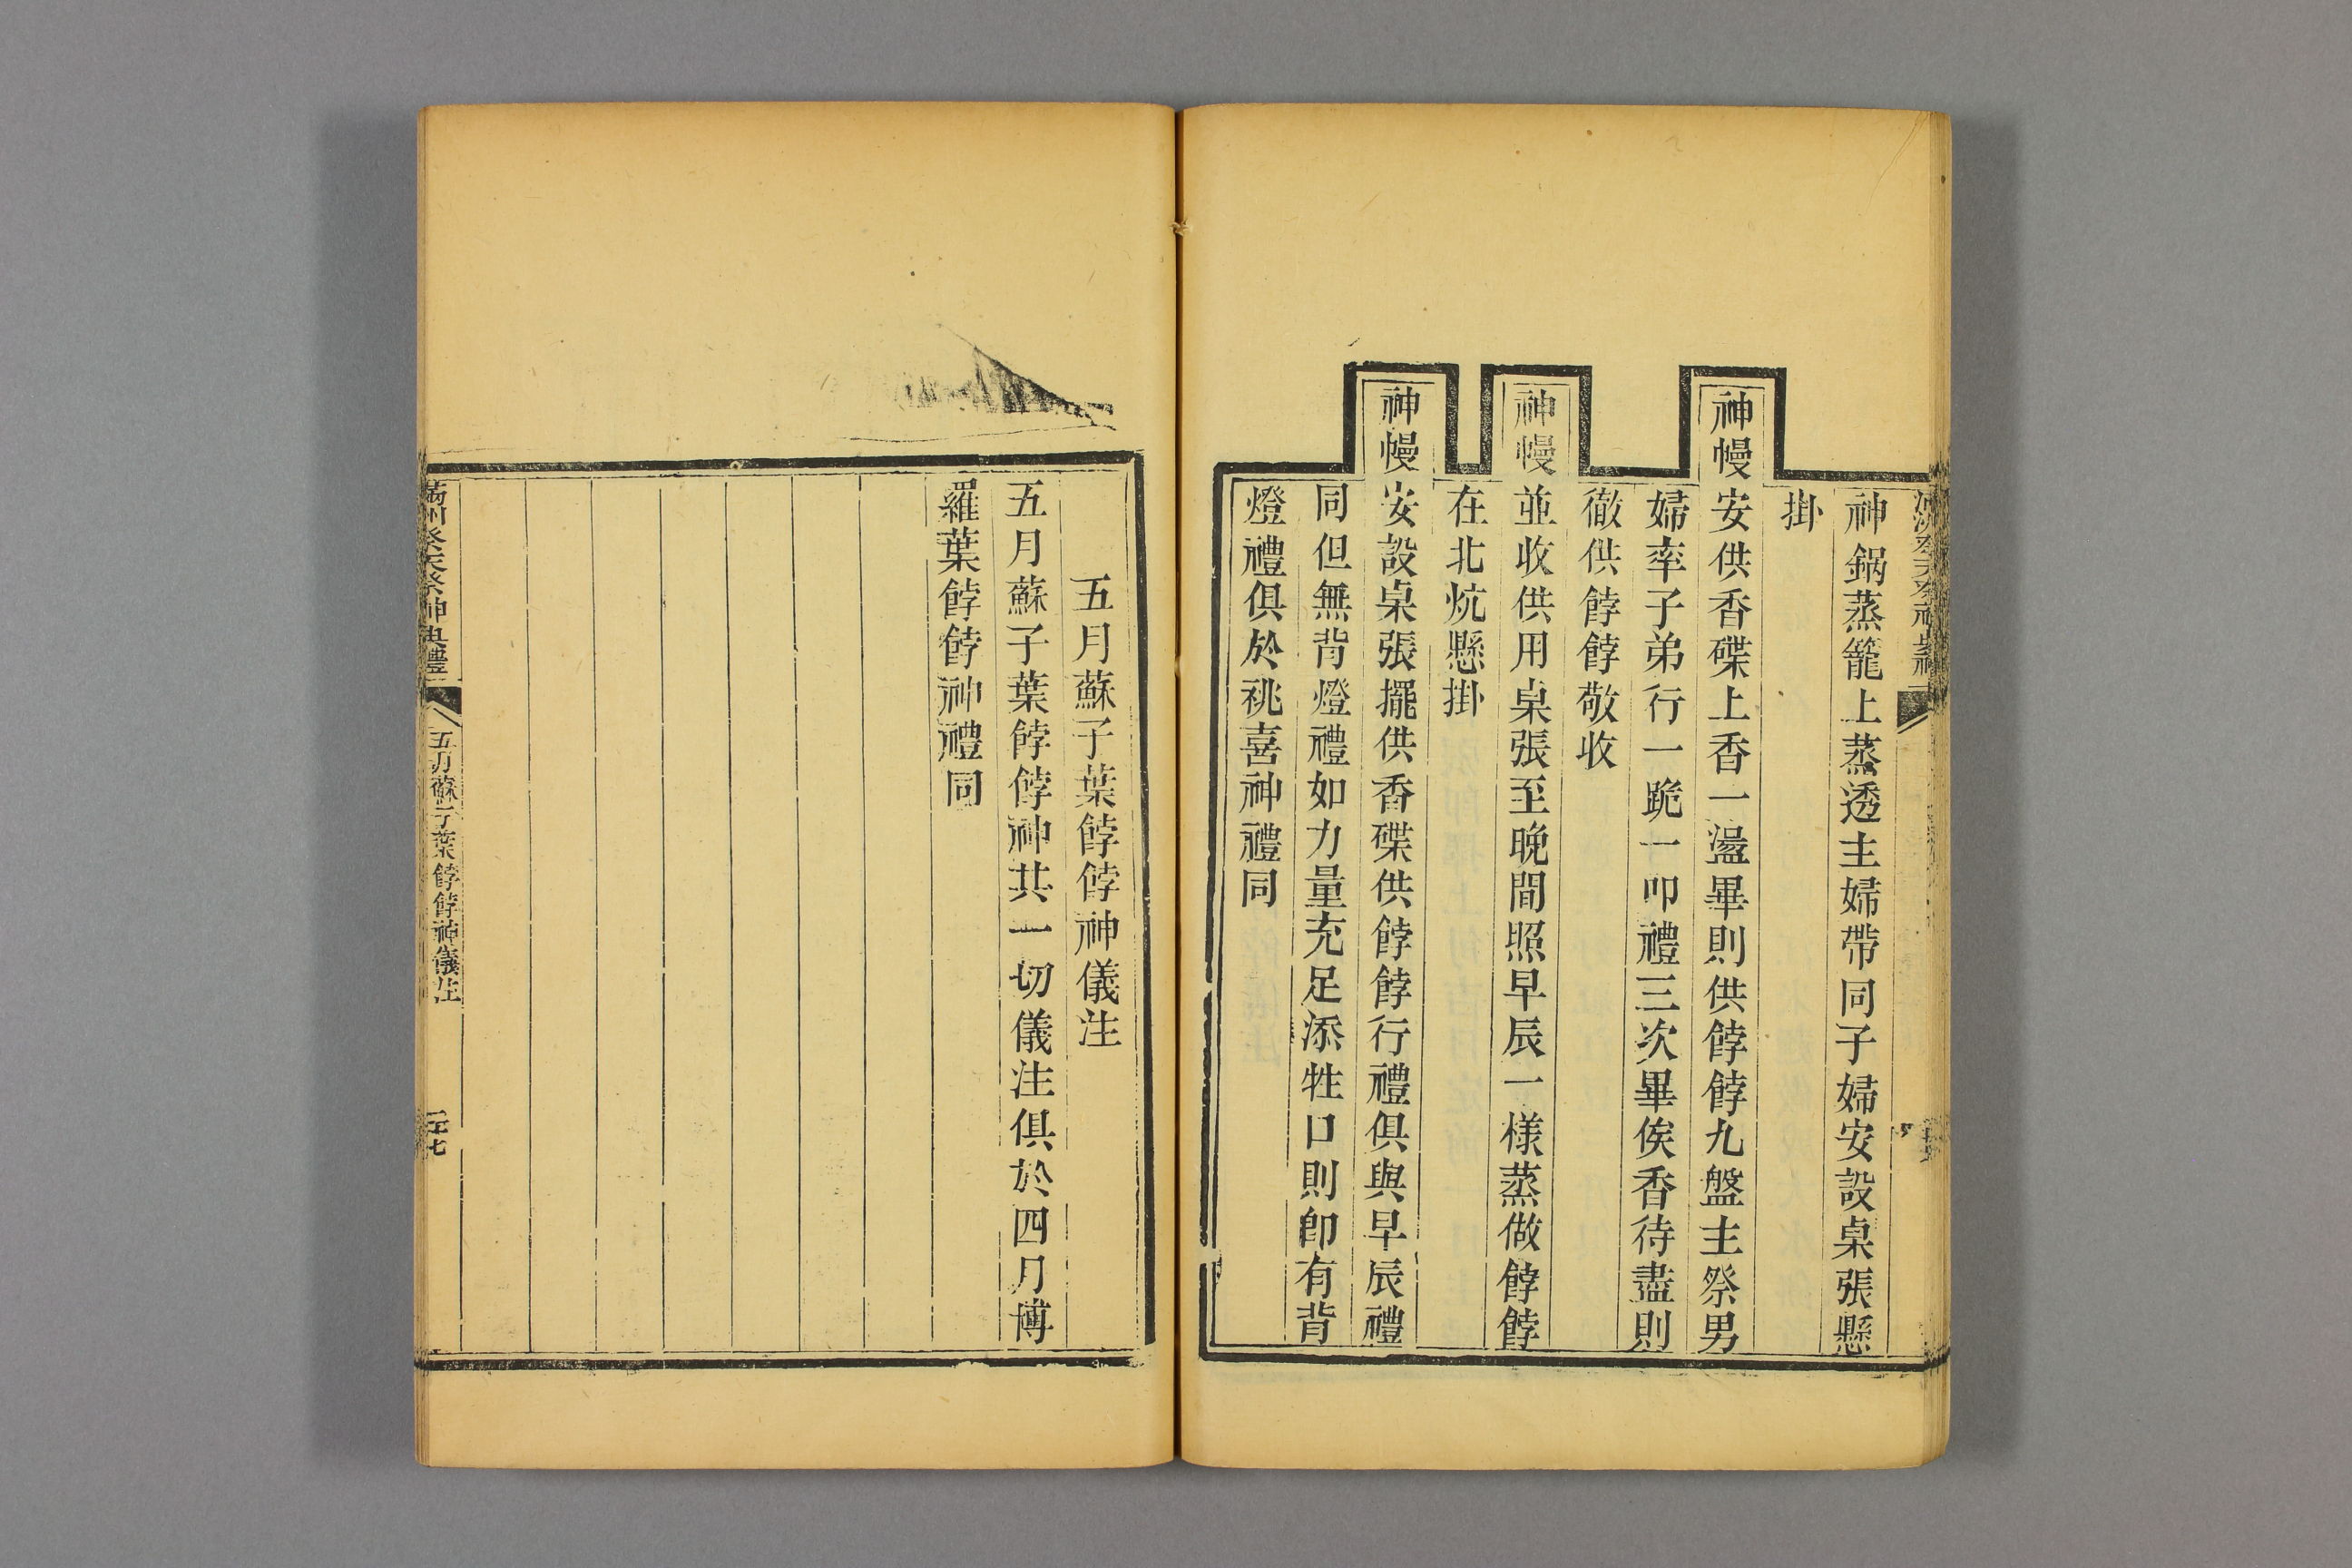 神鍋蒸籠上蒸透主婦帶同子婦安設桌張懸
掛
神幔安供香碟上香一盪畢則供餑餑九盤主祭男
婦率子弟行一跪一叩禮三次畢俟香待盡則
徹供餑餑敬收
神幔並收供用桌張至晚間照早辰一樣蒸做餑餑
在北炕懸掛
神幔安設桌張擺供香碟供餑餑行禮俱與早辰禮
同但無背燈禮如力量充足添牲口則卽有背
燈禮俱於祧喜神禮同
五月蘇子葉餑餑神儀注
五月蘇子葉餑餑神共一切儀注俱於四月博
羅葉餑餑神禮同
滿州祭天祭神典禮
五月蘇子葉餑餑神儀注